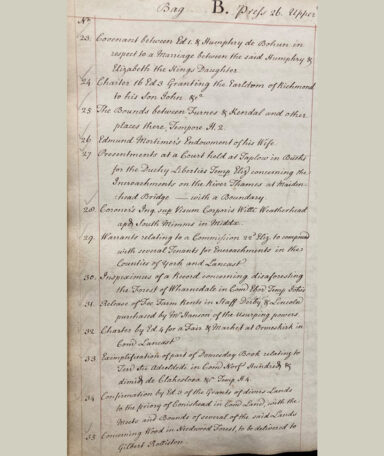 Bag B. Press 26. Upper
No.
23. Covenant between Ed 1. & Humphry de Bohun in
respect to a Marriage between the said Humphry &
Elizabeth the Kings Daughter
24 Charter 16 Ed 3 Granting the Earldom of Richmond
to his Son John &c
25 The Bounds between Furnes & Kendal and other
places there, Tempore H. 2.
26 Edmund Mortimer's Endowment of his Wife
27 Presentments at a Court held at Taplow in Bucks
for the Duchy Liberties Temp Eliz concerning the
Incroachments on the River Thames at Maiden-
head Bridge — with a Boundary
28. Coroner's Inq. sup Visum Corporis Willi Weatherhead
apd South Mimms in Middx.
29. Warrants relating to a Commission 22d Eliz. to compound
with several Tenants for Encroachments in the
Counties of York and Lancast
30. Inspeximus of a Record concerning disaforesting
the Forest of in Com Temp
31. Release of Fee Farm Rents in Staff Derby & Lincoln
purchased by Mr of the usurping powers
32 Charter by Ed. 4 for a Fair & Market at Ormeskirk in
Com Lancast
33 Exemplification of part of Domesday Book relating to
Terr in Com Norf Hundred &
dimid de Clakeslosa &c Temp H4.
34 Confirmation by Ed 3 of the Grants of divers Lands
to the priory of Conishead in Com Lanc, with the
Meets and Bounds of several of the said Lands
35 Concerning Wood in Needwood Forest, to be delivered to
Gilbert Rolleston.